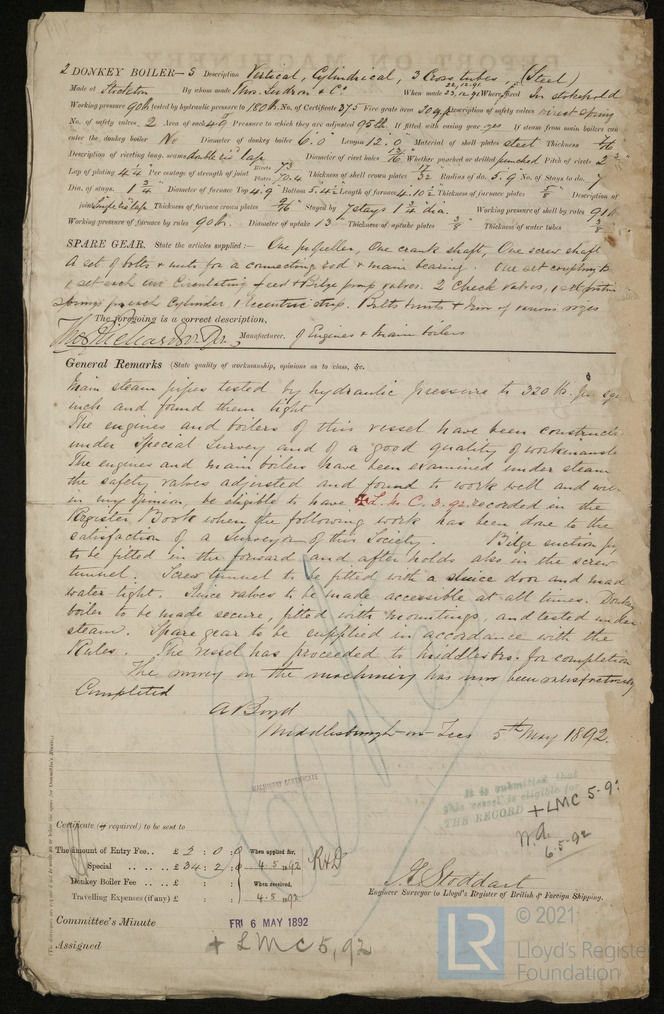 2 DONKEY BOILER— S Description Vertical, Cylindrical, 3 Cross tubes, (Steel)
Made at Stockton By whom made Thos. Sudron & Co When made 23.12.91 Where fixed In stokehold
Working pressure 90 lb tested by hydraulic pressure to 180 lb. No. of Certificate 375 Fire grate area Description of safety valves direct spring
No. of safety valves 2 Area of each Pressure to which they are adjusted 95 lb If fitted with easing gear yes If steam from main boilers can
enter the donkey boiler No Diameter of donkey boiler 6.0 Length 12.0 Material of shell plates Steel Thickness
Description of riveting long. seams double riv lap Diameter of rivet holes Whether punched or drilled punched Pitch of rivets 2
Lap of plating Per centage of strength of joint Rivets Plates 70.4 Thickness of shell crown plates Radius of do. 5.9 No. of Stays to do. 7
Dia. of stays. 1 3/4 Diameter of furnace Top 4.9 Bottom Length of furnace Thickness of furnace plates 5/8 Description of
joint single riv lap Thickness of furnace crown plates 9/16 Stayed by 7 stays 1 3/4 dia. Working pressure of shell by rules 91 lb
Working pressure of furnace by rules 90 lb. Diameter of uptake 13 Thickness of uptake plates 3/8 Thickness of water tubes 3/8
SPARE GEAR. State the articles supplied :— One propeller, One crank shaft, One screw shaft
A set of bolts & nuts for a connecting rod & main bearing. One set coupling
1 set each air Circulating feed & Bilge pump valves. 2 Check valves, 1 set piston
Springs for each Cylinder, 1 Eccentric strap. Bolts nuts & Iron of various sizes
The foregoing is a correct description,
Manufacturer. of Engines & Main boilers
General Remarks (State quality of workmanship, opinions as to class, &c.
Main steam pipes tested by hydraulic pressure to 320 lb. per sq
inch and found them tight
The engines and boilers of this vessel have been construct
under Special Survey and of a good quality of workmansh
The engines and main boilers have been examined under steam
the safety valves adjusted and found to work well and will
in my opinion be eligible to have ✠ L.M.C. 3.92 recorded in the
Register Book when the following work has been done to the
Satisfaction of a Surveyor of this Society. Bilge suction
to be fitted in the forward and after holds also in the screw
tunnel. Screw tunnel to be fitted with a sluice door and mad
water-tight. Sluice valves to be made accessible at all times. Donkey
boiler to be made secure, fitted with mountings, and tested under
steam. Spare gear to be supplied in accordance with the
Rules. The vessel has proceeded to Middlesbro. for completion
The survey on the machinery has now been satisfactorily
Completed
A Boyd
Middlesbrough-on-Tees 5th May 1892.
MACHINERY CERTIFICATE
It is submitted that
this vessel is eligible for
THE RECORD + LMC 5.92
6.5.92
Certificate (if required) to be sent to
The amount of Entry Fee .. £ 2 : 0 : 0 When applied for,
Special .. .. .. £ 34 : 2 : 0 4.5.1892
Donkey Boiler Fee .. .. £ : : When received,
Travelling Expenses (if any) £ : : 4.5.1892
J.G. Stoddart
Engineer Surveyor to Lloyd's Register of British & Foreign Shipping.
Committee's Minute FRI 6 MAY 1892
Assigned + LMC 5,92
LR © 2021
Lloyd's Register
Foundation